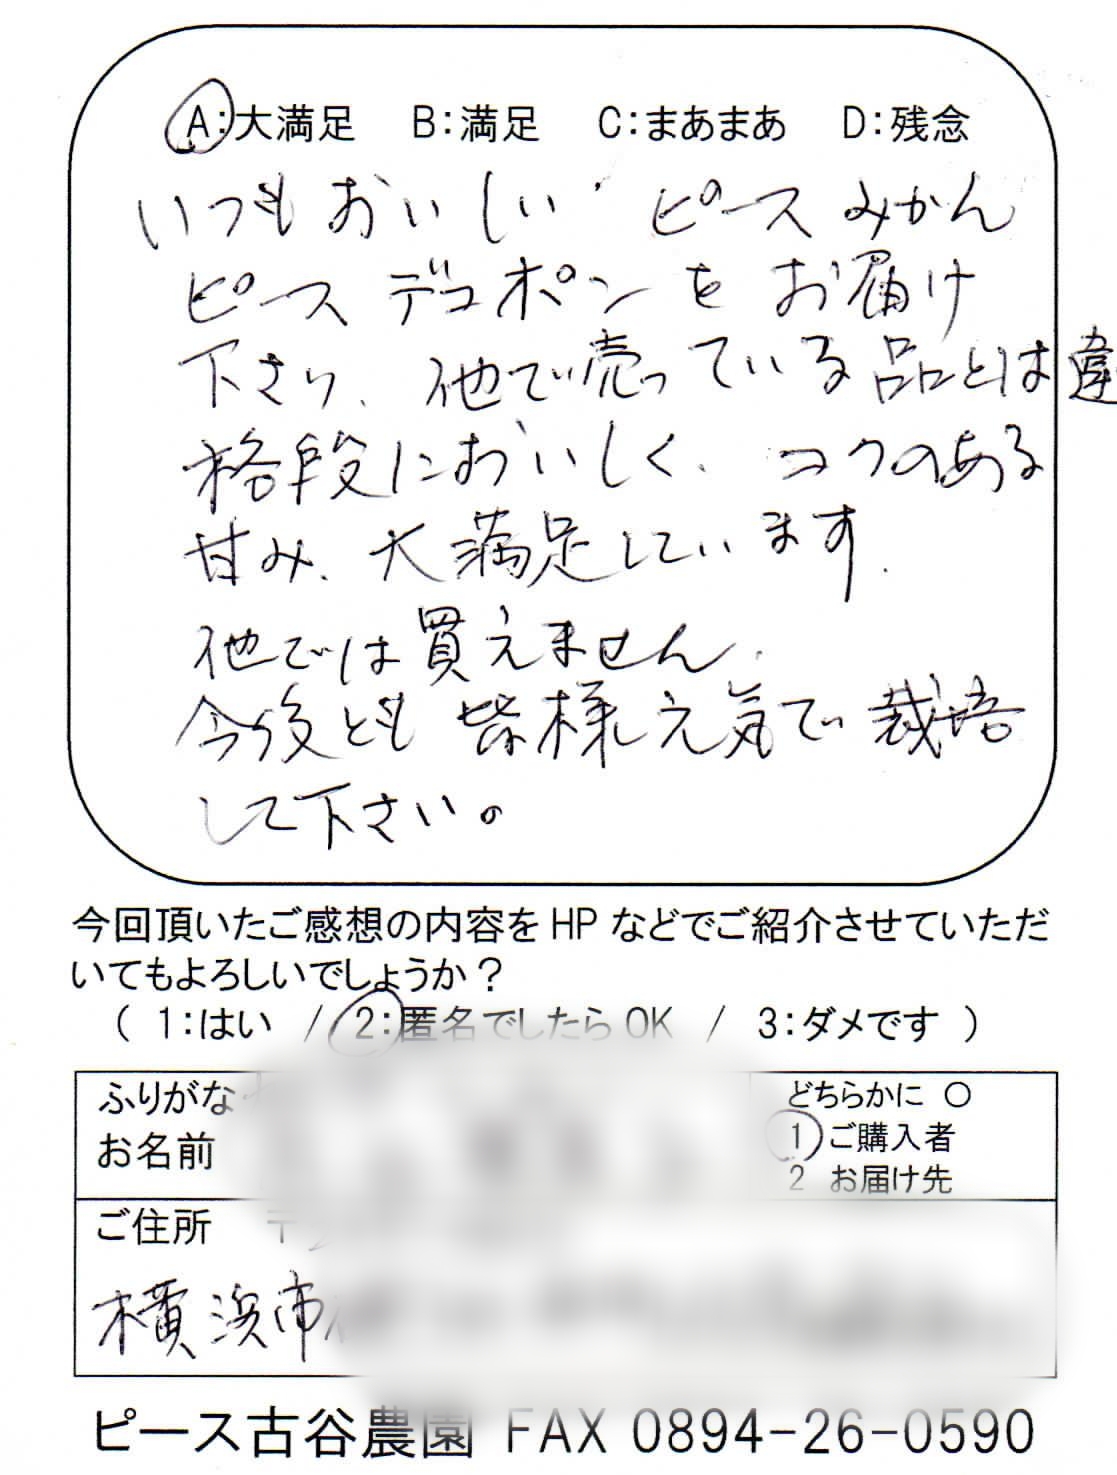 A:大満足 B:満足 C:まあまあ D:残念
いつもおいしい ピースみかん
ピースデコポンをお届け
下さり、他で売っている品とは違
格段においしく、コクのある
甘み、大満足しています.
他では買えません.
今後とも皆様元気で栽培
して下さい。
今回頂いたご感想の内容をHPなどでご紹介させていただ
いてもよろしいでしょうか？
( 1:はい / 2:匿名でしたらOK / 3:ダメです )
ふりがな
お名前
どちらかに ○
1 ご購入者
2 お届け先
ご住所 〒
横浜市
ピース古谷農園 FAX 0894-26-0590